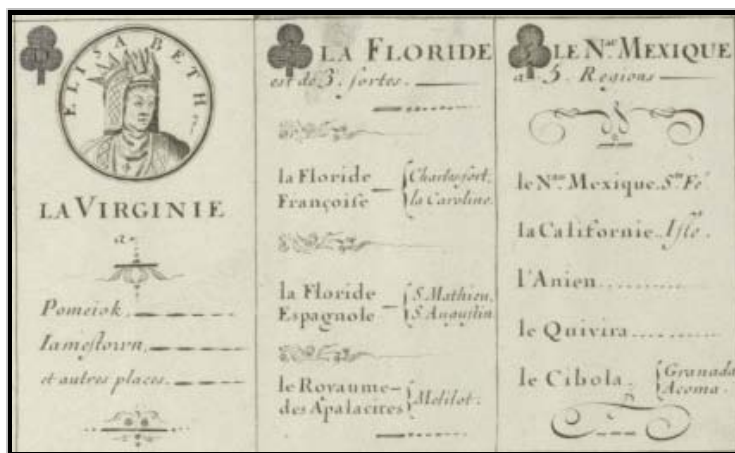 ELISABETH
LA VIRGINIE
a
Pomeiok
Iamestown,
et autres places.
LA FLORIDE
est de 3. sortes.
la Floride
Françoise
Charlesfort.
la Caroline.
la Floride
Espagnole
S. Mathieu.
S. Augustin.
le Royaume
des Apalacites
Melilot.
LE N.au MEXIQUE
a 5. Regions
le N.au Mexique. S.ta Fé
la Californie. Isle.
l'Anien
le Quivira
le Cibola.
Granada
Acoma.